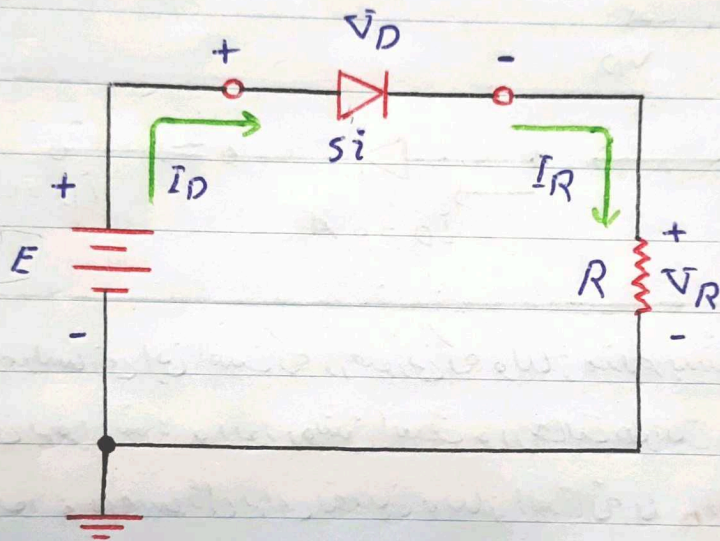 V_D
+ -
si
I_D
I_R
+
E
-
+
R V_R
-